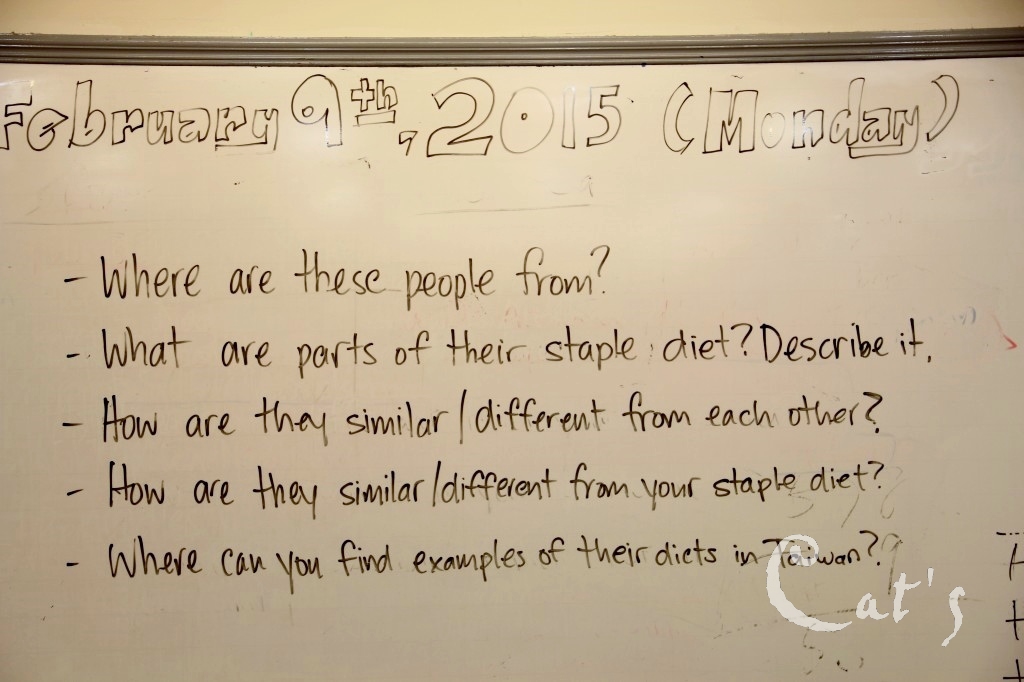 February 9th, 2015 (Monday)
- Where are these people from?
- What are parts of their staple diet? Describe it.
- How are they similar/different from each other?
- How are they similar/different from your staple diet?
- Where can you find examples of their diets in Taiwan?
Cat's